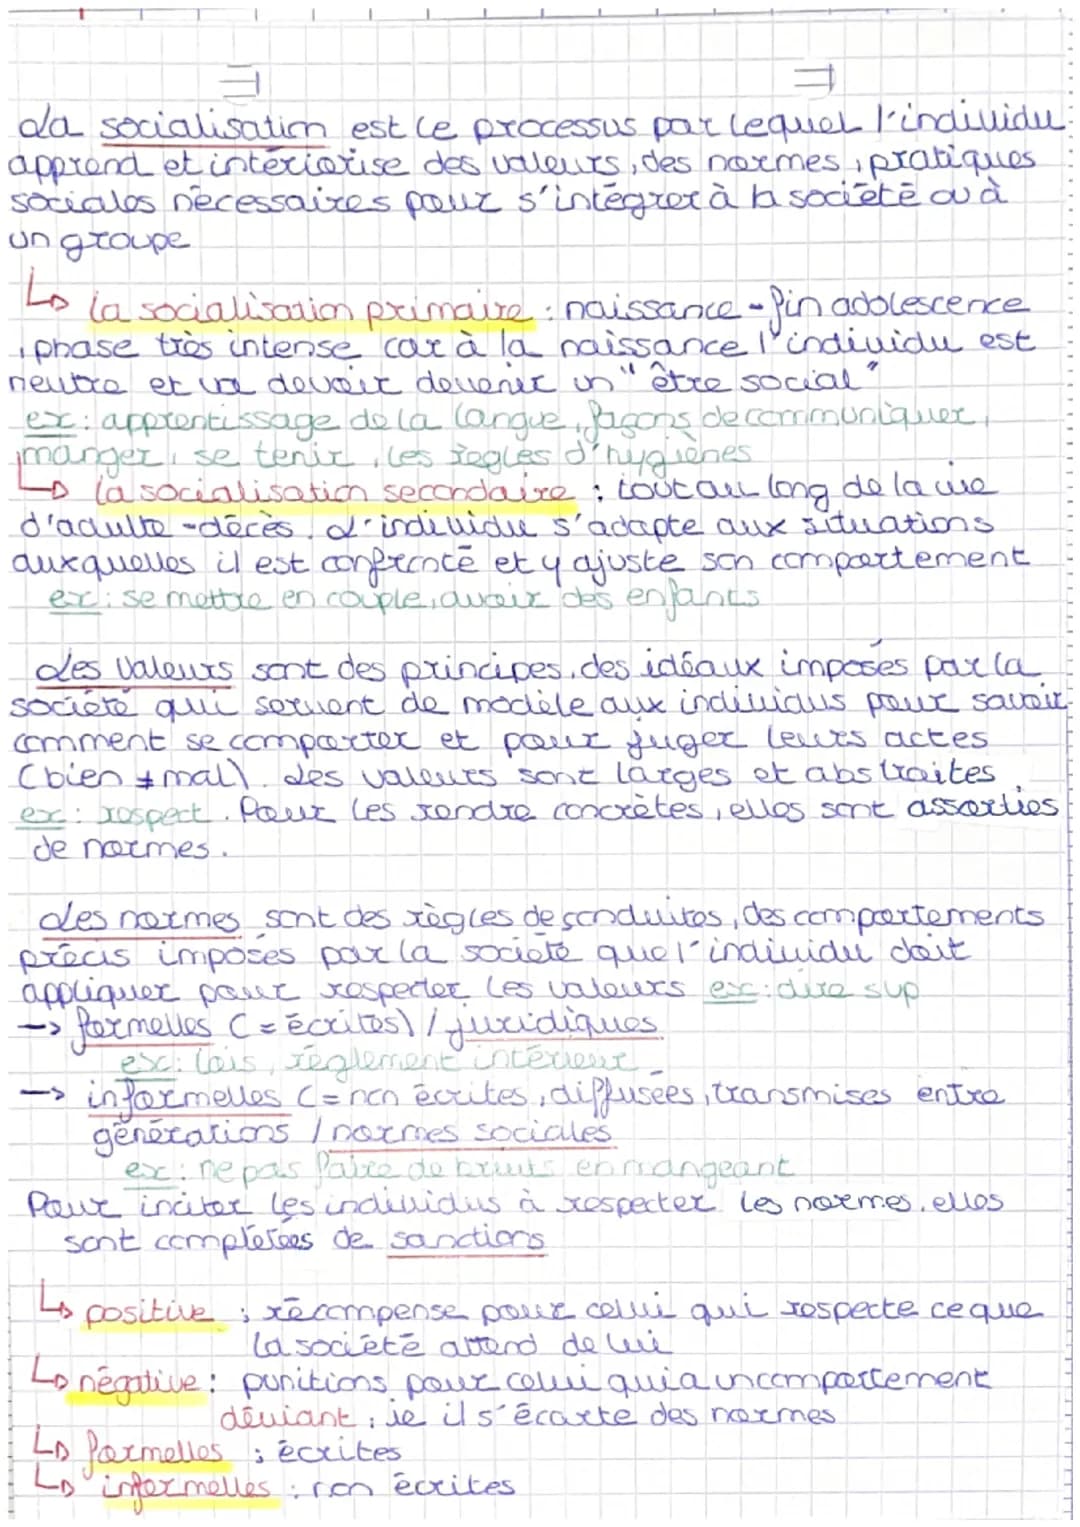 La socialisation est le processus par lequel l'individu
apprend et intériorise des valeurs, des normes, pratiques
sociales nécessaires pour s'intégrer à la société ou à
un groupe
↳ la socialisation primaire : naissance - fin adolescence
, phase très intense car à la naissance l'individu est
neutre et va devoir devenir un "être social"
ex : apprentissage de la langue, façons de communiquer,
manger, se tenir, les règles d'hygiènes
↳ la socialisation secondaire : tout au long de la vie
d'adulte - décès. L'individu s'adapte aux situations
auxquelles il est confronté et y ajuste son comportement
ex : se mettre en couple, avoir des enfants
Les valeurs sont des principes, des idéaux imposés par la
société qui servent de modèle aux individus pour savoir
comment se comporter et pour juger leurs actes
(bien ≠ mal). Les valeurs sont larges et abstraites
ex : respect. Pour les rendre concrètes, elles sont assorties
de normes.
Les normes sont des règles de conduites, des comportements
précis imposés par la société que l'individu doit
appliquer pour respecter les valeurs ex : dire svp
→ formelles (= écrites) / juridiques
ex : lois, règlement intérieur
→ informelles (= non écrites, diffusées, transmises entre
générations / normes sociales
ex : ne pas faire de bruits en mangeant
Pour inciter les individus à respecter les normes, elles
sont complétées de sanctions
↳ positive : récompense pour celui qui respecte ce que
la société attend de lui
↳ négative : punitions pour celui qui a un comportement
déviant, ie il s'écarte des normes
↳ formelles : écrites
↳ informelles : non écrites